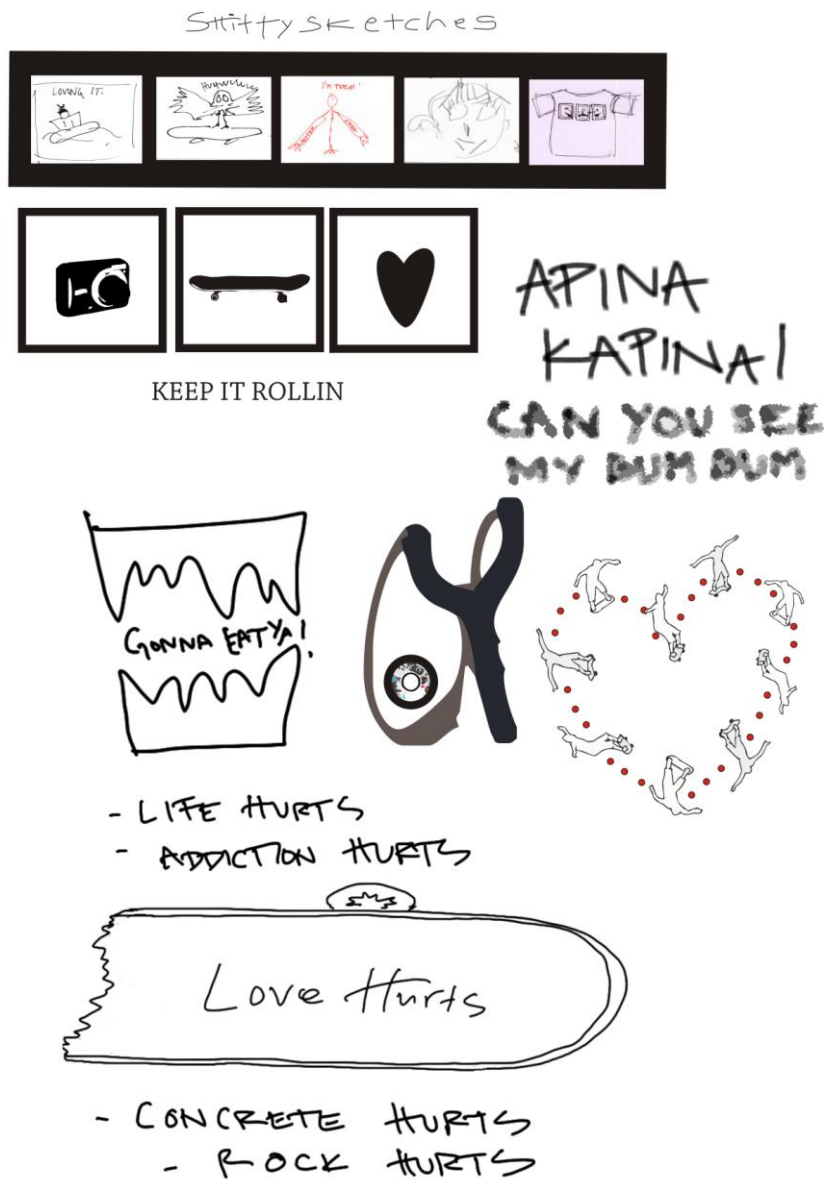 Shitty sketches
LOVING IT.
I'M TORN!
KEEP IT ROLLIN
APINA
KAPINA!
CAN YOU SEE
MY DUM DUM
GONNA EAT YA!
- LIFE HURTS
- ADDICTION HURTS
Love Hurts
- CONCRETE HURTS
- ROCK HURTS